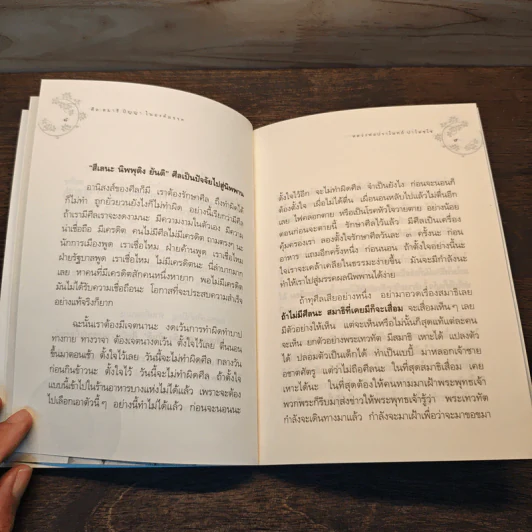 "สีเลนะ นิพพุติง ยันติ" ศีลเป็นปัจจัยไปสู่นิพพาน
อานิสงส์ของศีลก็มี เราต้องรักษาศีล ถึงทำผิดได้
ก็ไม่ทำ ถูกยั่วยวนยังไงก็ไม่ทำผิด อย่างนี้เรียกว่ามีศีล
ถ้าเรามีศีลเราจะงดงามนะ มีความงามในตัวเอง มีความ
น่าเชื่อถือ มีเครดิต คนไม่มีศีลไม่มีเครดิต ถามตรงๆ นะ
นักการเมืองพูด เราเชื่อไหม ฝ่ายค้านพูด เราเชื่อไหม
ฝ่ายรัฐบาลพูด เราเชื่อไหม ไม่มีเครดิตนะ นี่ลำบากมาก
เลย หาคนที่มีเครดิตสักคนหนึ่งหายาก พอไม่มีเครดิต
มันไม่ได้รับความเชื่อถือนะ โอกาสที่จะประสบความสำเร็จ
อย่างแท้จริงก็ยาก
ฉะนั้นเราต้องมีเจตนานะ งดเว้นการทำผิดทำบาป
ทางกาย ทางวาจา ต้องเจตนางดเว้น ตั้งใจไว้เลย ตื่นนอน
ขึ้นมาตอนเช้า ตั้งใจไว้เลย วันนี้จะไม่ทำผิดศีล กลางวัน
ก่อนกินข้าวนะ ตั้งใจไว้ วันนี้จะไม่ทำผิดศีล ถ้าตั้งใจ
แบบนี้เข้าไปในร้านอาหารบางแห่งไม่ได้แล้ว เพราะจะต้อง
ไปเลือกเอาตัวนี้ๆ อย่างนี้ทำไม่ได้แล้ว ก่อนจะนอนนะ
ตั้งใจไว้อีก จะไม่ทำผิดศีล จำเป็นยังไง ก่อนจะนอนก็
ต้องตั้งใจ เผื่อไม่ได้ตื่น เผื่อนอนหลับไปแล้วไม่ตื่นอีก
เลย ไฟคลอกตาย หรือเป็นโรคหัวใจวายตาย อย่างน้อย
ตอนก่อนจะตายนี้ รักษาศีลไว้แล้ว มีศีลเป็นเครื่อง
คุ้มครองเรา ลองตั้งใจรักษาศีลวันละ ๓ ครั้งนะ ก่อน
อาหาร แถมอีกครั้งหนึ่ง ก่อนนอน ถ้าตั้งใจอย่างนั้นนะ
ใจเราจะเคล้าเคลียในธรรมะง่ายขึ้น มันจะมีกำลังนะ
ทำให้เราไปสู่มรรคผลนิพพานได้ง่าย
ถ้าทุศีลเสียอย่างหนึ่ง อย่ามาอวดเรื่องสมาธิเลย
ถ้าไม่มีศีลนะ สมาธิที่เคยมีก็จะเสื่อม จะเสื่อมเห็นๆ เลย
มีตัวอย่างให้เห็น แต่จะเห็นหรือไม่นั้นก็สุดแท้แต่ละคน
จะเห็น ยกตัวอย่างพระเทวทัต มีสมาธิ เหาะได้ แปลงตัว
ได้ ปลอมตัวเป็นเด็กได้ ทำเป็นเบบี๋ มาหลอกเจ้าชาย
อชาตศัตรู แต่ว่าไม่ถือศีลนะ ในที่สุดสมาธิเสื่อม เคย
เหาะได้นะ ในที่สุดต้องให้คนหามมาเฝ้าพระพุทธเจ้า
พวกพระก็รีบมาส่งข่าวให้พระพุทธเจ้ารู้ว่า พระเทวทัต
กำลังจะเดินทางมาแล้ว กำลังจะมาเฝ้าเพื่อว่าจะมาขอขมา